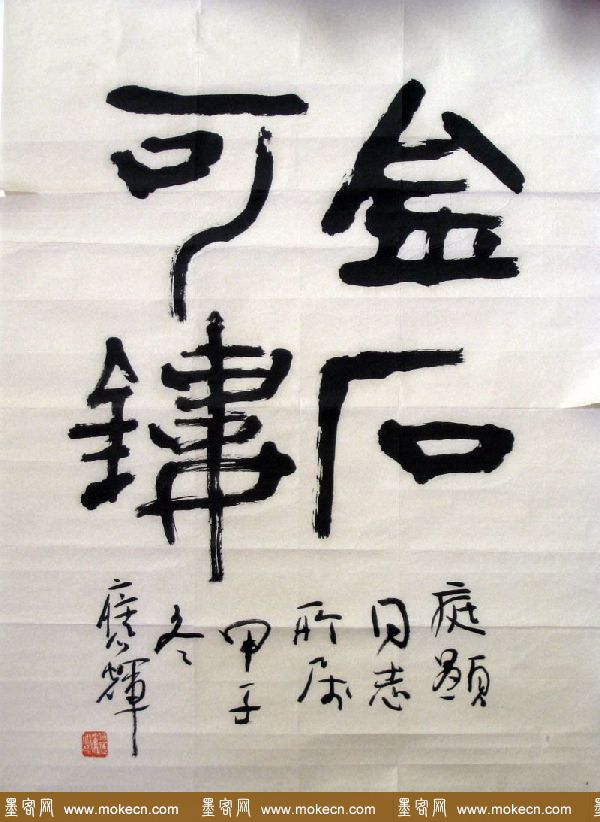 金石
可鏤
庭顯
同志
所属
甲子
冬
輝
墨客网 www.mokecn.com 墨客网 www.mokecn.com 墨客网 www.mokecn.com